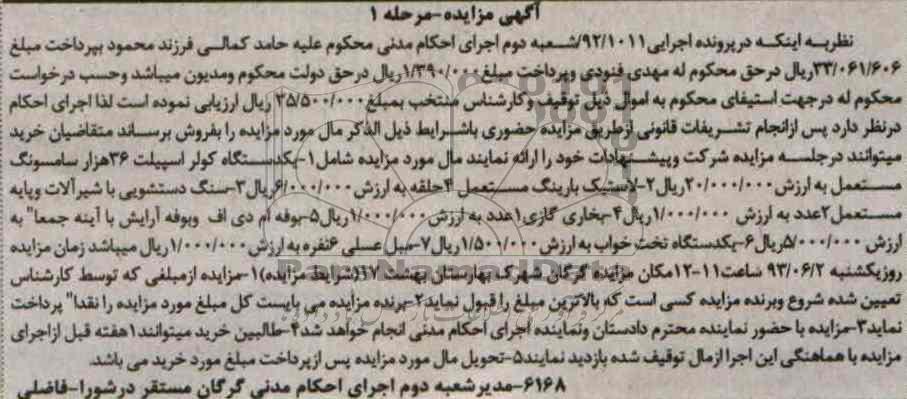 آگهی مزایده-مرحله ۱
نظربه اینکه درپرونده اجرایی۹۲/۱۰۱۱/شعبه دوم اجرای احکام مدنی محکوم علیه حامد کمالی فرزند محمود بپرداخت مبلغ
۳۳/۰۶۱/۶۰۶ریال درحق محکوم له مهدی فنودی وپرداخت مبلغ۱/۳۹۰/۰۰۰ریال درحق دولت محکوم ومدیون میباشد وحسب درخواست
محکوم له درجهت استیفای محکوم به اموال ذیل توقیف وکارشناس منتخب بمبلغ۳۵/۵۰۰/۰۰۰ ریال ارزیابی نموده است لذا اجرای احکام
درنظر دارد پس ازانجام تشریفات قانونی ازطریق مزایده حضوری باشرایط ذیل الذکر مال مورد مزایده را بفروش برساند متقاضیان خرید
میتوانند درجلسه مزایده شرکت وپیشنهادات خود را ارائه نمایند مال مورد مزایده شامل۱-یکدستگاه کولر اسپیلت ۳۶هزار سامسونگ
مستعمل به ارزش۲۰/۰۰۰/۰۰۰ریال۲-لاستیک بارینگ مستعمل ۴حلقه به ارزش۶/۰۰۰/۰۰۰ریال۳-سنگ دستشویی با شیرآلات وپایه
مستعمل۲عدد به ارزش ۱/۰۰۰/۰۰۰ریال۴-بخاری گازی۱عدد به ارزش۱/۰۰۰/۰۰۰ریال۵-بوفه ام دی اف وبوفه آرایش با آینه جمعا" به
ارزش ۵/۰۰۰/۰۰۰ریال۶-یکدستگاه تخت خواب به ارزش۱/۵۰۰/۰۰۰ریال۷-مبل عسلی ۶نفره به ارزش۱/۰۰۰/۰۰۰ریال میباشد زمان مزایده
روزیکشنبه ۹۳/۰۶/۲ ساعت۱۱-۱۲مکان مزایده گرگان شهرک بهارستان بهشت ۱۷(شرایط مزایده)۱-مزایده ازمبلغی که توسط کارشناس
تعیین شده شروع وبرنده مزایده کسی است که بالاترین مبلغ را قبول نماید۲-برنده مزایده می بایست کل مبلغ مورد مزایده را نقدا" پرداخت
نماید۳-مزایده با حضور نماینده محترم دادستان ونماینده اجرای احکام مدنی انجام خواهد شد۴-طالبین خرید میتوانند۱هفته قبل ازاجرای
مزایده با هماهنگی این اجرا ازمال توقیف شده بازدید نمایند۵-تحویل مال مورد مزایده پس ازپرداخت مبلغ مورد خرید می باشد.
۶۱۶۸-مدیرشعبه دوم اجرای احکام مدنی گرگان مستقر درشورا-فاضلی